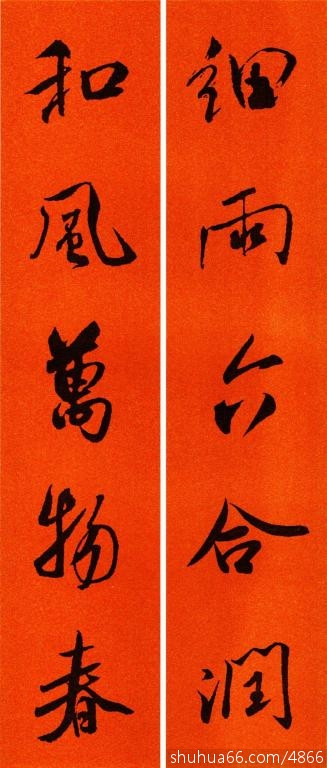 細雨六合潤
和風萬物春
shuhua66.com/4866